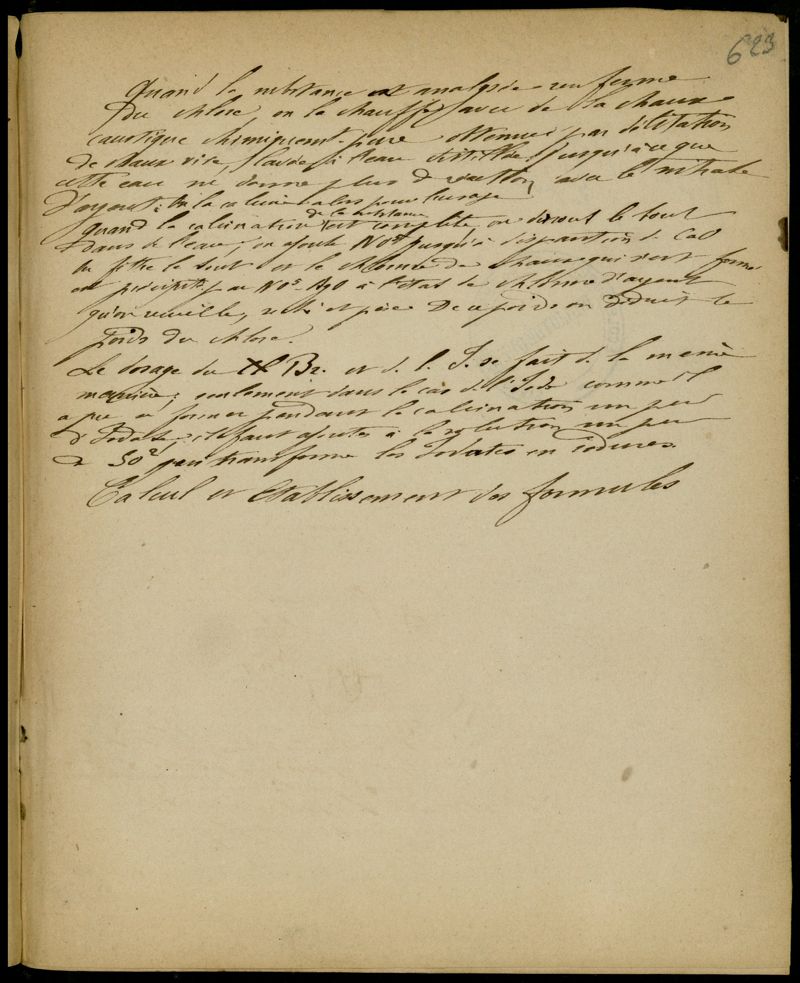 623
Quand la substance est analysée renferme
du chlore, on la chauffe avec de la chaux
caustique chimiquement pure obtenue par
de chaux vive, lavée à l'eau distillée jusqu'à ce que
cette eau ne donne plus de réaction avec le nitrate
d'argent; on la calcine alors pour l'usage
de la substance
Quand la calcination est complète, on dissout le tout
dans de l'eau, on ajoute jusqu'à disparition de CaO
On filtre le tout et le chlorure de chaux qui s'est formé
est précipité par AgO à l'état de chlorure d'argent
qu'on recueille, sèche et pèse. De ce poids on déduit le
poids du chlore.
Le dosage du Br. et de l'I. se fait de la même
manière; seulement dans le cas de l'Iode comme il
a pu se former pendant la calcination un peu
d'Iodate, il faut ajouter à la solution un peu
de SO² qui transforme les Iodates en iodures.
Calcul et établissement des formules